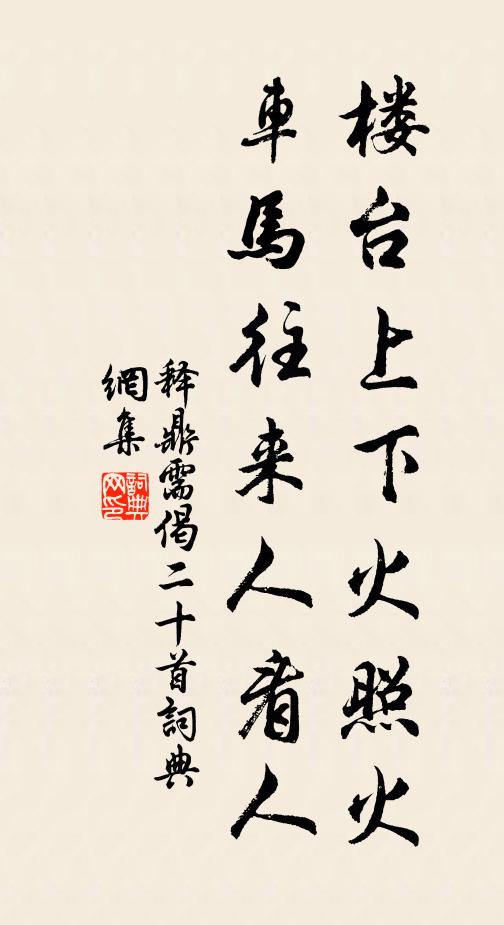 楼台上下火照火
車馬往来人看人
释鼎需偈二十首詞典
網集
詞典網印